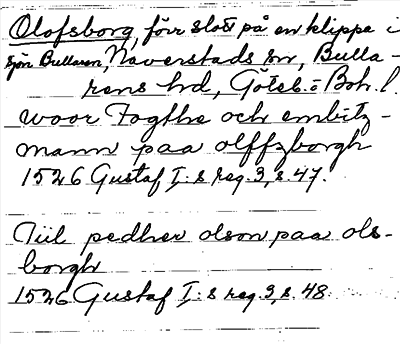 Olofsborg, förr slott på en klippa i
sjön Bullaren, Naverstads sn, Bulla-
rens hd, Göteb. o Boh. l.
woor Fogthe och embitz-
mann paa olffzborgh
1526 Gustaf I:s reg. 3, s. 47.
Tiil pedher olson paa ols-
borgh
1526 Gustaf I:s reg. 3, s. 48